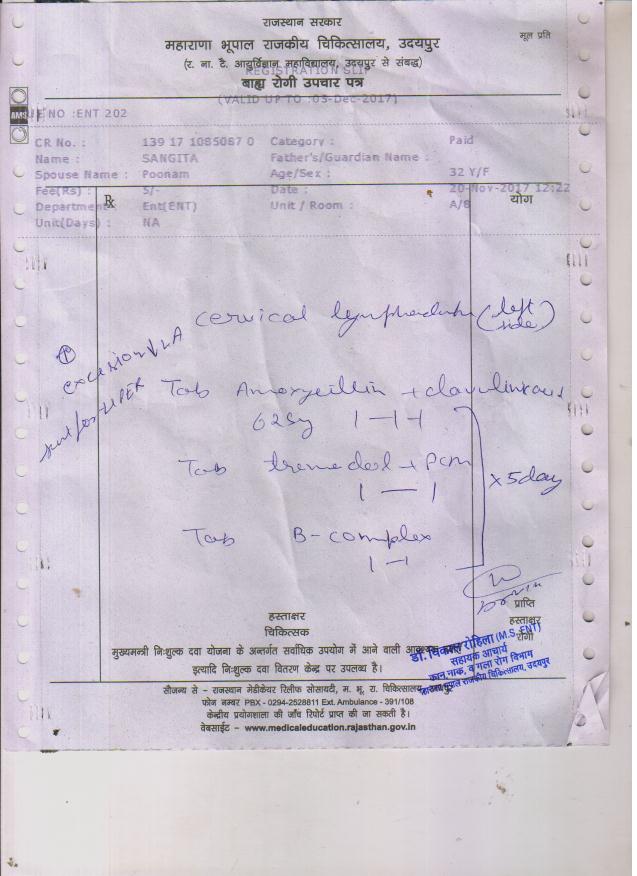 राजस्थान सरकार
महाराणा भूपाल राजकीय चिकित्सालय, उदयपुर
मूल प्रति
(र. ना. टै. आयुर्विज्ञान महाविद्यालय, उदयपुर से संबद्ध)
REGISTRATION SLIP
बाह्य रोगी उपचार पत्र
(VALID UP TO :05-Dec-2017)
AMS
E NO :ENT 202
CR No. : 139 17 1085087 0 Category : Paid
Name : SANGITA Father's/Guardian Name :
Spouse Name : Poonam Age/Sex : 32 Y/F
Fee(Rs) : 5/- Date : 20-Nov-2017 12:22
Department Ent(ENT) Unit / Room : A/8
Unit(Days) : NA
Rx योग
cervical (left side)
excision LA
Tab Amoxycillin +
625mg 1-1-1
Tab + Pcm
1 — 1
x 5day
Tab B-complex
1-1
हस्ताक्षर
चिकित्सक
प्राप्ति
हस्ताक्षर
रोगी
मुख्यमन्त्री निःशुल्क दवा योजना के अन्तर्गत सर्वाधिक उपयोग में आने वाली
इत्यादि निःशुल्क दवा वितरण केन्द्र पर उपलब्ध है।
डॉ. रोहिला (M.S. ENT)
सहायक आचार्य
कान,नाक, व गला रोग विभाग
भूपाल राजकीय चिकित्सालय, उदयपुर
सौजन्य से - राजस्थान मेडीकेयर रिलीफ सोसायटी, म. भू. रा. चिकित्सालय,
फोन नम्बर PBX - 0294-2528811 Ext. Ambulance - 391/108
केन्द्रीय प्रयोगशाला की जाँच रिपोर्ट प्राप्त की जा सकती है।
वेबसाईट - www.medicaleducation.rajasthan.gov.in